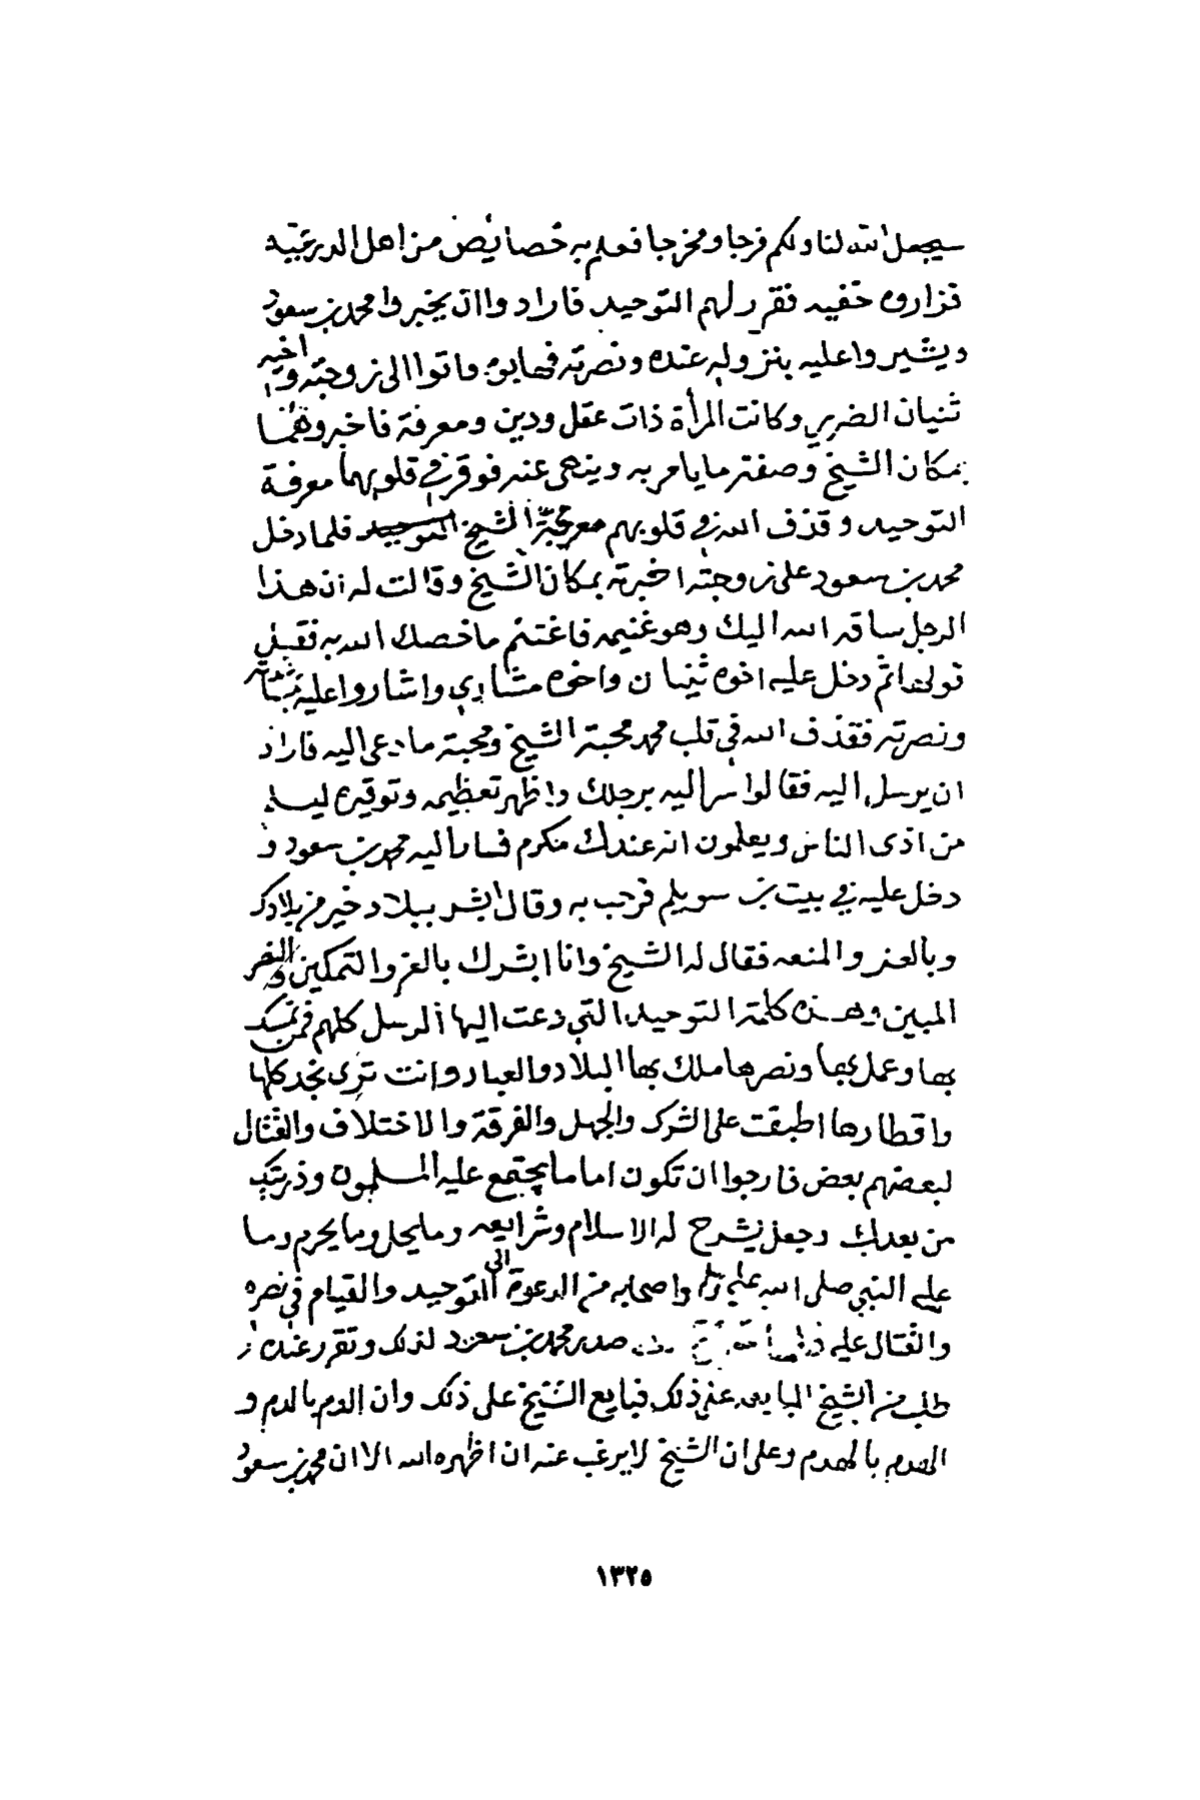 سيجعل الله لنا ولكم فرجا ومخرجا فعلم به خصايص من اهل الدرعية
فزاروه خفيه فقرر لهم التوحيد فارادوا ان يخبروا محمد بن سعود
ويشيروا عليه بنزوله عنده ونصرته فهابوه فاتوا الى زوجته واخيه
ثنيان الضرير وكانت المرأة ذات عقل ودين ومعرفة فاخبروهما
بمكان الشيخ وصفة ما يامر به وينهى عنه فوقر في قلوبهما معرفة
التوحيد وقذف الله في قلوبهم محبة الشيخ فلما دخل
محمد بن سعود على زوجته اخبرته بمكان الشيخ وقالت له ان هذا
الرجل ساقه الله اليك وهو غنيمه فاغتنم ما خصك الله به فقبل
قولها ثم دخل عليه اخوه ثنيان واخوه مشاري واشاروا عليه
ونصرته فقذف الله في قلب محمد محبة الشيخ ومحبة ما دعى اليه فاراد
ان يرسل اليه فقالوا سر اليه برجلك واظهر تعظيمه وتوقيره ليسلم
من اذى الناس ويعلمون انه عندك مكرم فسار اليه محمد بن سعود و
دخل عليه في بيت بن سويلم فرحب به وقال ابشر ببلاد خير من بلادك
وبالعز والمنعه فقال له الشيخ وانا ابشرك بالعز والتمكين والنصر
المبين وهذه كلمة التوحيد التي دعت اليها الرسل كلهم فمن تمسك
بها وعمل بها ونصرها ملك بها البلاد والعباد وانت ترى نجد كلها
واقطارها اطبقت على الشرك والجهل والفرقة والاختلاف والقتال
لبعضهم بعض فارجوا ان تكون اماما يجتمع عليه المسلمون وذريتك
من بعدك وجعل يشرح له الاسلام وشرايعه وما يحل وما يحرم وما
عليه النبي صلى الله عليه وسلم واصحابه من الدعوة الى التوحيد والقيام في نصره
والقتال عليه صدر محمد بن سعود لذلك وتقرر عنده
طلب من الشيخ المبايعه على ذلك فبايع الشيخ على ذلك وان الدم بالدم و
الهدم بالهدم وعلى ان الشيخ لا يرغب عنه ان اظهره الله الا ان محمد بن سعود
١٣٢٥